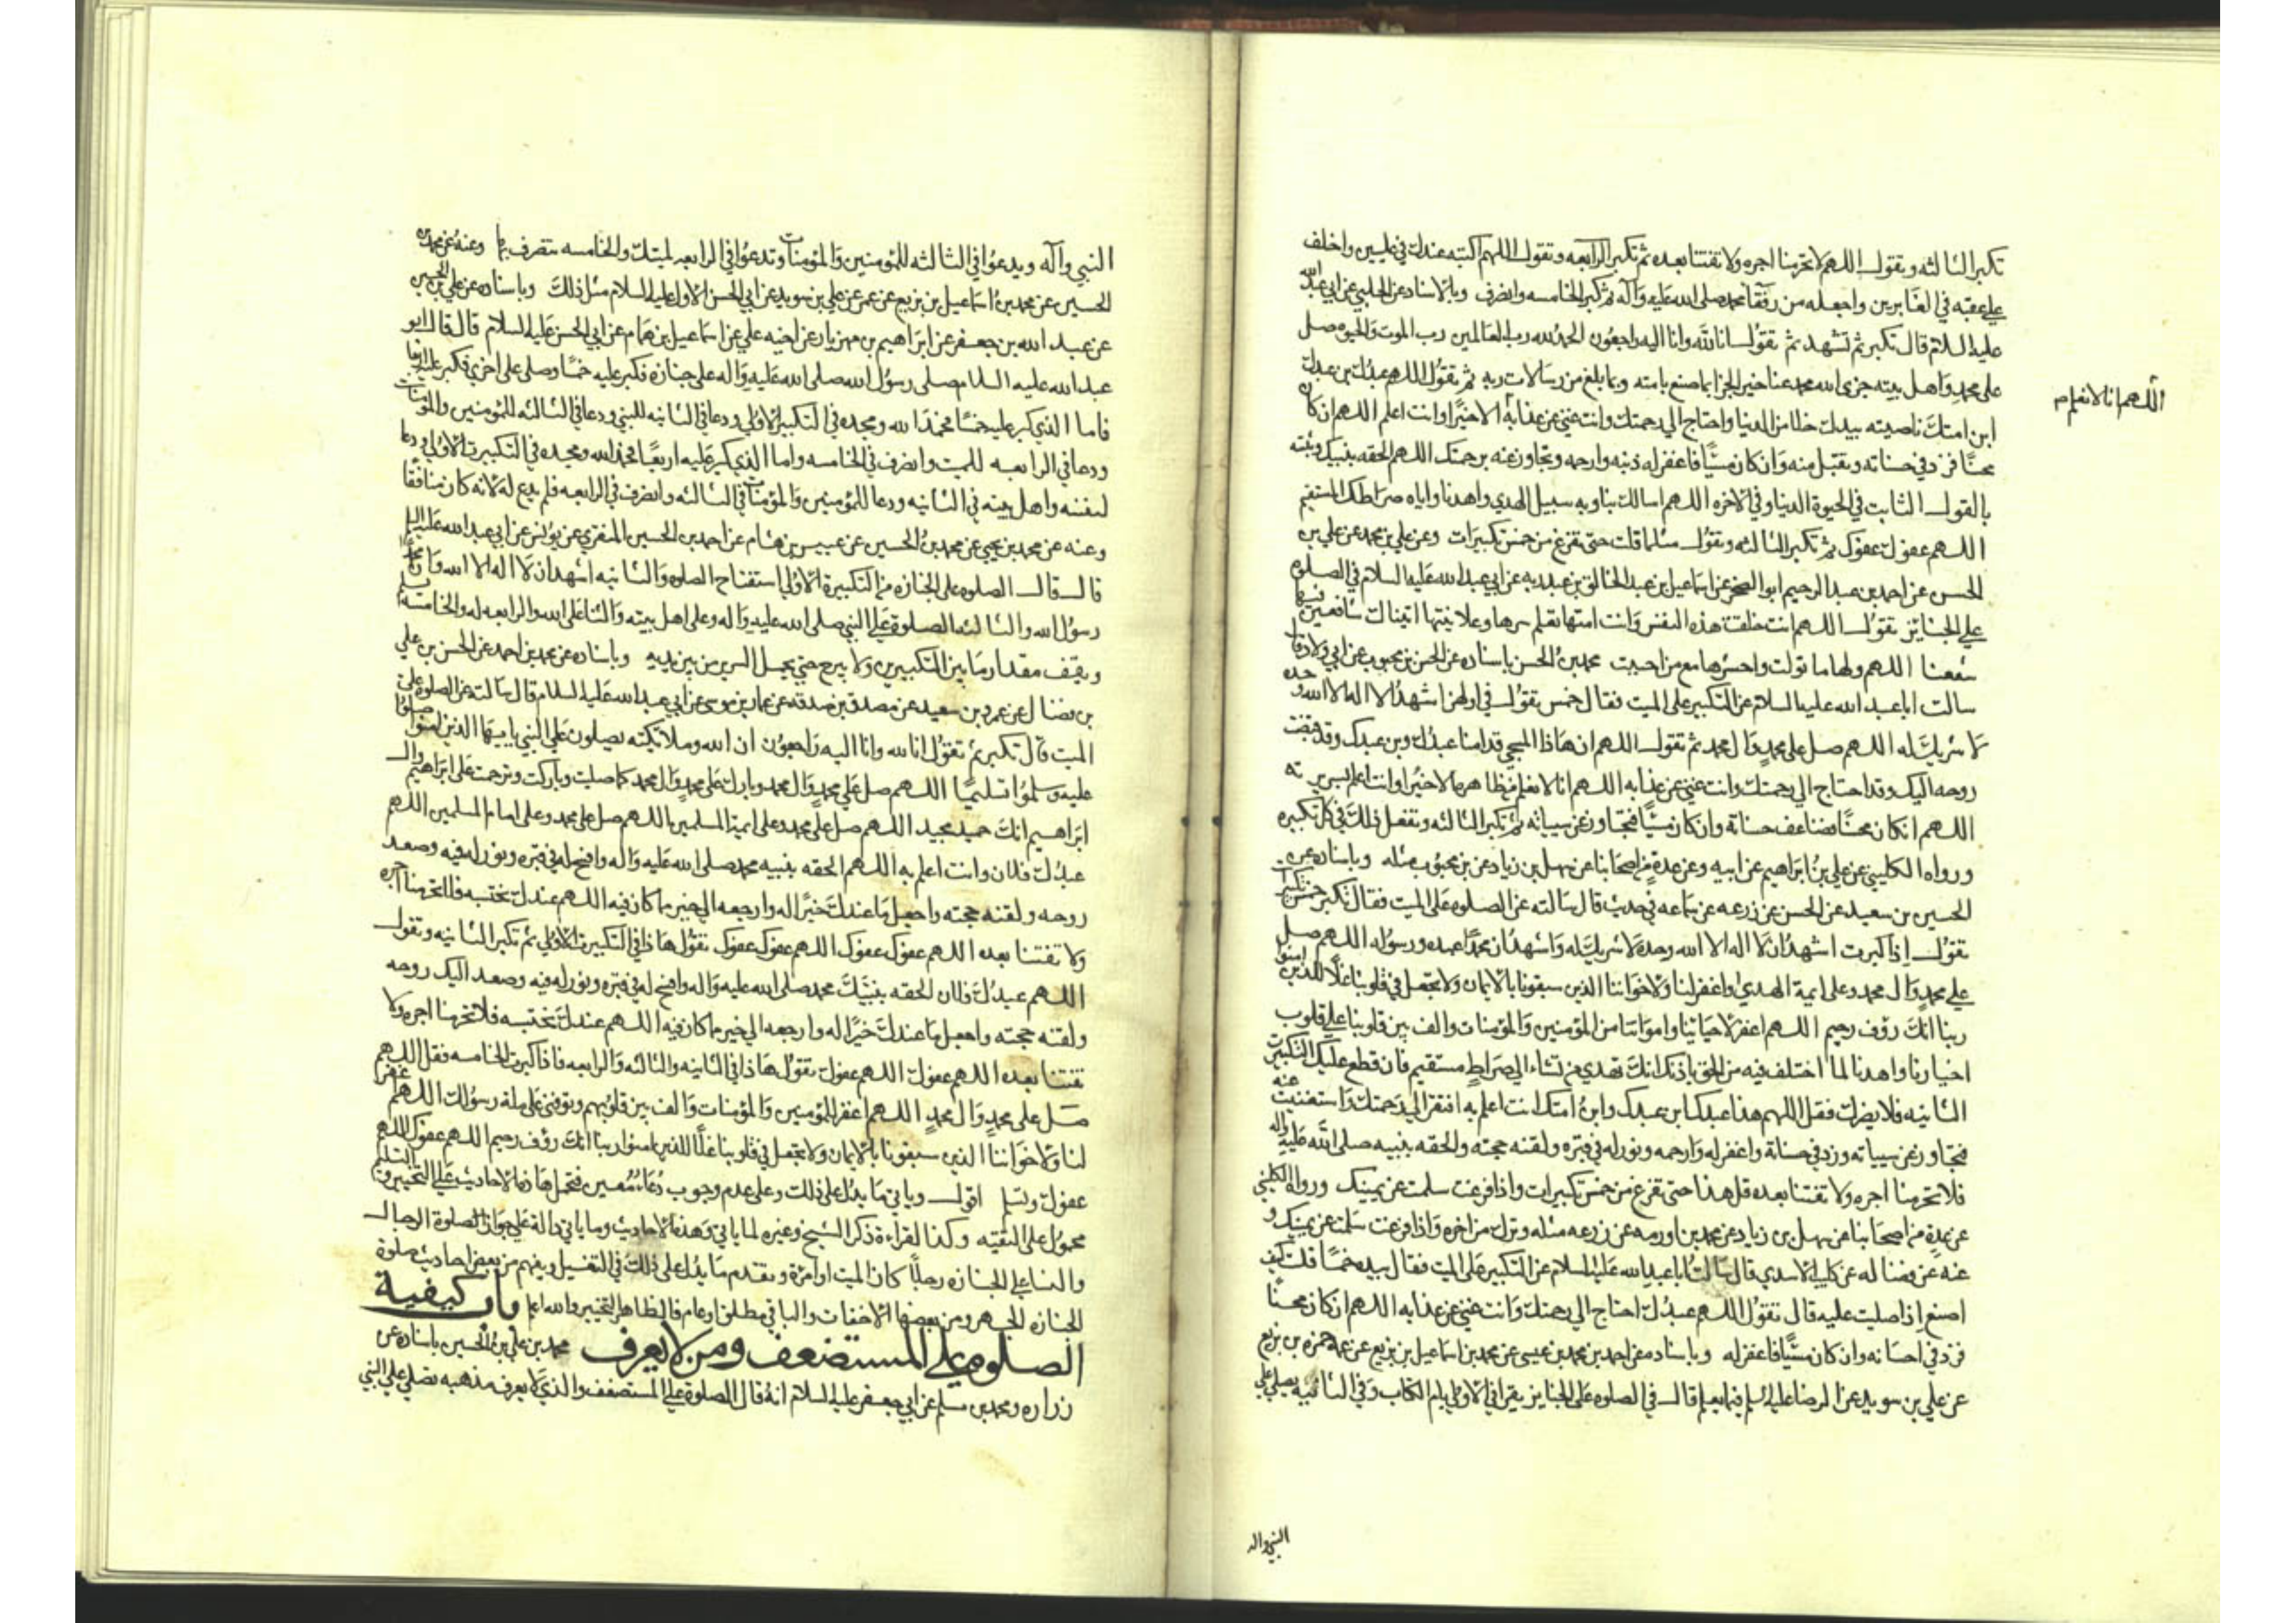 تكبر الثالثه وتقول اللهم لا تحرمنا اجره ولا تفتنا بعده ثم تكبر الرابعه وتقول اللهم اكتبه عندك في عليين واخلف
علي عقبه في الغابرين واجعله من رفقا محمد صلى الله عليه وآله ثم تكبر الخامسه وانصرف وبالاسناد عن الحلبي عن ابي عبد الله
عليه السلام قال تكبر ثم تشهد ثم تقول انا لله وانا اليه راجعون الحمد لله رب العالمين رب الموت والحيوه صل
على محمد واهل بيته جزى الله محمد عنا خير الجزا بما صنع بامته وبما بلغ من رسالات ربه ثم تقول اللهم عبدك بن عبدك
ابن امتك ناصيته بيدك خلا من الدنيا واحتاج الي رحمتك وانت غني عن عذابه الا خيرا وانت اعلم اللهم ان كان
اللهم انا لا نعلم م
محسنًا فزد في حسناته وتقبل منه وان كان مسيًا فاغفر له ذنبه وارحمه وتجاوز عنه برحمتك اللهم الحقه بنبيك وثبته
بالقول الثابت في الحيوة الدنيا وفي الاخره اللهم اسالك بنا وبه سبيل الهدي واهدنا واياه صراطك المستقيم
اللهم عفوك عفوك ثم تكبر الثالثه وتقول مثلما قلت حتى تفرغ من خمس تكبيرات وعن علي بن محمد عن علي بن
الحسن عن احمد بن عبد الرحيم ابو الصخر عن اسماعيل بن عبد الخالق بن عبد ربه عن ابي عبد الله عليه السلام في الصلوه
علي الجنايز تقول اللهم انت خلقت هذه النفس وانت امتها تعلم سرها وعلانيتها اتيناك شافعين فيها
شفعنا اللهم ولها ما تولت واحشرها مع من احببت محمد بن الحسن باسناده عن الحسن بن محبوب عن ابي ولاد قال
سالت ابا عبد الله عليه السلام عن التكبير على الميت فقال خمس تقول في اولهن اشهد ان لا اله الا الله وحده
لا شريك له اللهم صل على محمد وال محمد ثم تقول اللهم ان هاذا المسجي قدامنا عبدك وبن عبدك وقد قبضت
روحه اليك وقد احتاج الي رحمتك وانت غني عن عذابه اللهم انا لا نعلم من ظاهره الا خيرا وانت اعلم بسريرته
اللهم ان كان محسنًا فضاعف حسناته وان كان مسيًا فتجاوز عن سيياته ثم تكبر الثالثه وتفعل ذلك في كل تكبيره
ورواه الكليني عن علي بن ابراهيم عن ابيه وعن عدة من اصحابنا عن سهل بن زياد عن بن محبوب مثله وباسناده عن
الحسين بن سعيد عن الحسن عن زرعه عن سماعه في حديث قال سالته عن الصلوه على الميت فقال تكبر خمس تكبيرات
تقول اذا كبرت اشهد ان لا اله الا الله وحده لا شريك له واشهد ان محمدًا عبده ورسوله اللهم صل
علي محمد وال محمد وعلى ايمة الهدي واغفر لنا ولاخواننا الذين سبقونا بالايمان ولا تجعل في قلوبنا غلًا للذين امنوا
ربنا انك رؤف رحيم اللهم اغفر لاحيائنا وامواتنا من المؤمنين والمؤمنات والف بين قلوبنا علي قلوب
اخيارنا واهدنا لما اختلف فيه من الحق باذنك انك تهدي من تشاء الي صراط مستقيم فان قطع عليك التكبيرة
الثانيه فلا يضرك فقل اللهم هذا عبدك ابن عبدك وابن امتك انت اعلم به افتقر الي رحمتك واستغنيت عنه
فتجاوز عن سيياته وزد في حسناته واغفر له وارحمه ونور له في قبره ولقنه حجته والحقه بنبيه صلى الله عليه واله
فلا تحرمنا اجره ولا تفتنا بعده قل هذا حتى تفرغ من خمس تكبيرات واذا فرغت سلمت عن يمينك ورواه الكليني
عن عدة من اصحابنا عن سهل بن زياد عن محمد بن اورمه عن زرعه مثله وترك من اخره واذا فرغت سلمت عن يمينك و
عنه عن فضاله عن كليب الاسدي قال سالت ابا عبد الله عليه السلام عن التكبير على الميت فقال بيده خمسًا قلت كيف
اصنع اذا صليت عليه قال تقول اللهم عبدك احتاج الي رحمتك وانت غني عن عذابه اللهم ان كان محسنًا
فزد في احسانه وان كان مسيًا فاغفر له وباسناده عن احمد بن محمد بن عيسى عن محمد بن اسماعيل بن بزيع عن عمه حمزه بن بزيع
عن علي بن سويد عن الرضا عليه السلم فيما يعلم قال في الصلوه على الجنايز يقرا في الاولي بام الكتاب وفي الثانيه يصلي علي
النبي واله
النبي وآله ويدعوا في الثالثه للمؤمنين والمؤمنات وتدعوا في الرابعه لميتك والخامسه تنصرف بها وعنه عن محمد بن
الحسين عن محمد بن اسماعيل بن بزيع عن عمر عن علي بن سويد عن ابي الحسن الاول عليه السلام مثل ذلك وباسناده عن علي بن الحسين
عن عبد الله بن جعفر عن ابراهيم بن مهزيار عن اخيه علي عن اسماعيل بن همام عن ابي الحسن عليه السلام قال قال ابو
عبد الله عليه السلام صلى رسول الله صلى الله عليه واله على جنازه فكبر عليه خمسًا وصلى على اخرى فكبر عليه اربعا
فاما الذي كبر عليه خمسًا فحمد الله ومجده في التكبيرة الاولي ودعا في الثانيه للنبي ودعا في الثالثه للمؤمنين والمؤمنات
ودعا في الرابعه للميت وانصرف في الخامسه واما الذي كبر عليه اربعًا فحمد الله ومجده في التكبيرة الاولي ودعا
لنفسه واهل بيته في الثانيه ودعا للمؤمنين والمؤمنات في الثالثه وانصرف في الرابعه فلم يدع له لانه كان منافقا
وعنه عن محمد بن يحيي عن محمد بن الحسين عن عبيس بن هشام عن احمد بن الحسين المنقري عن يونس عن ابي عبد الله عليه السلم
قال قال الصلوه على الجنازه من التكبيرة الاولي استفتاح الصلوه والثانيه اشهد ان لا اله الا الله وان محمدًا
رسول الله والثالثه الصلوة علي النبي صلى الله عليه واله وعلى اهل بيته والثنا على الله والرابعه له والخامسه يسلم
ويقف مقدار ما بين التكبيرين ولا يبرح حتي يحمل السرير من بين يديه وباسناده عن محمد بن احمد عن الحسن بن علي
بن فضال عن عمرو بن سعيد عن مصدق بن صدقه عن عمار بن موسى عن ابي عبد الله عليه السلام قال سالته عن الصلوه على
الميت قال تكبر ثم تقول انا لله وانا اليه راجعون ان الله وملائكته يصلون على النبي يا ايها الذين امنوا صلوا
عليه وسلموا تسليمًا اللهم صل علي محمد وال محمد وبارك على محمد وال محمد كما صليت وباركت وترحمت على ابراهيم وال
ابراهيم انك حميد مجيد اللهم صل على محمد وعلى ايمة المسلمين اللهم صل على محمد وعلى امام المسلمين اللهم
عبدك فلان وانت اعلم به اللهم الحقه بنبيه محمد صلى الله عليه واله وافسح له في قبره ونور له فيه وصعد
روحه ولقنه حجته واجعل ما عندك خيرًا له وارجعه الي خير مما كان فيه اللهم عندك نحتسبه فلا تحرمنا اجره
ولا تفتنا بعده اللهم عفوك عفوك اللهم عفوك عفوك تقول هاذا في التكبيرة الاولي ثم تكبر الثانيه وتقول
اللهم عبدك فلان الحقه بنبيك محمد صلى الله عليه واله وافسح له في قبره ونور له فيه وصعد اليك روحه
ولقنه حجته واجعل ما عندك خيرًا له وارجعه الي خير مما كان فيه اللهم عندك نحتسبه فلا تحرمنا اجره ولا
تفتنا بعده اللهم عفوك اللهم عفوك تقول هاذا في الثانيه والثالثه والرابعه فاذا كبرت الخامسه فقل اللهم
صل على محمد وال محمد اللهم اغفر للمؤمنين والمؤمنات والف بين قلوبهم وتوفني على ملة رسولك اللهم اغفر
لنا ولاخواننا الذين سبقونا بالايمان ولا تجعل في قلوبنا غلًا للذين امنوا ربنا انك رؤف رحيم اللهم عفوك اللهم
عفوك وتسلم اقول وياتي ما يدل على ذلك وعلى عدم وجوب دعاء معين فتحمل هاذه الاحاديث علي التخيير والتسليم
محمول على التقيه وكذا القراءة ذكر الشيخ وغيره لما ياتي وهذه الاحاديث وما ياتي دالة علي جواز الصلوة الرجال
والنسا علي الجنازه رجلًا كان الميت او امرة وتقدم ما يدل على ذلك في التغسيل ويفهم من بعض احاديث صلوة
الجنازه الجهر ومن بعضها الاخفات والباقي مطلق او عام فالظاهر التخيير والله اعلم باب كيفية
الصلوه علي المستضعف ومن لا يعرف محمد بن علي بن الحسين باسناده عن
زراره ومحمد بن مسلم عن ابي جعفر عليه السلام انه قال الصلوة علي المستضعف والذي لا يعرف مذهبه تصلي علي النبي